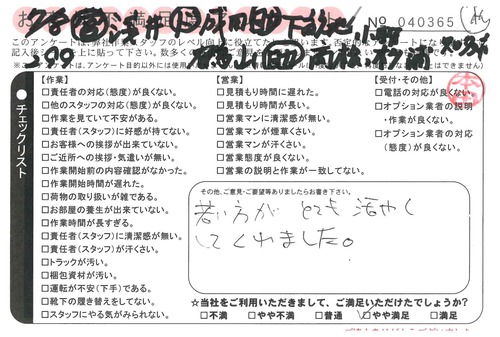 No 040365
このアンケートは、弊社作業スタッフのレベル向上に役立てて
【作業】
□責任者の対応(態度)が良くない。
□他のスタッフの対応(態度)が良くない。
□作業を見ていて不安がある。
□責任者(スタッフ)に好感が持てない。
□お客様への挨拶が出来ていない。
□ご近所への挨拶・気遣いが無い。
□作業開始前の内容確認がなかった。
□作業開始時間が遅れた。
□荷物の取り扱いが雑である。
□お部屋の養生が出来ていない。
□作業時間が長すぎる。
□責任者(スタッフ)に清潔感が無い。
□責任者(スタッフ)が汗くさい。
□トラックが汚い。
□梱包資材が汚い。
□運転が不安(下手)である。
□靴下の履き替えをしてない。
□スタッフにやる気がみられない。
チェックリスト
【営業】
□見積もり時間に遅れた。
□見積もり時間が長い。
□営業マンに清潔感が無い。
□営業マンが煙草くさい。
□営業マンが汗くさい。
□営業態度が良くない。
□営業の説明と作業が一致してない。
【受付・その他】
□電話の対応が良くない。
□オプション業者の説明
・作業が良くない。
□オプション業者の対応
(態度)が良くない。
その他、ご意見・ご要望等ありましたらお書き下さい。
若い方が とても 活やく
してくれました。
☆当社をご利用いただきまして、ご満足いただけたでしょうか?
□不満 □やや不満 □普通 □やや満足 □満足